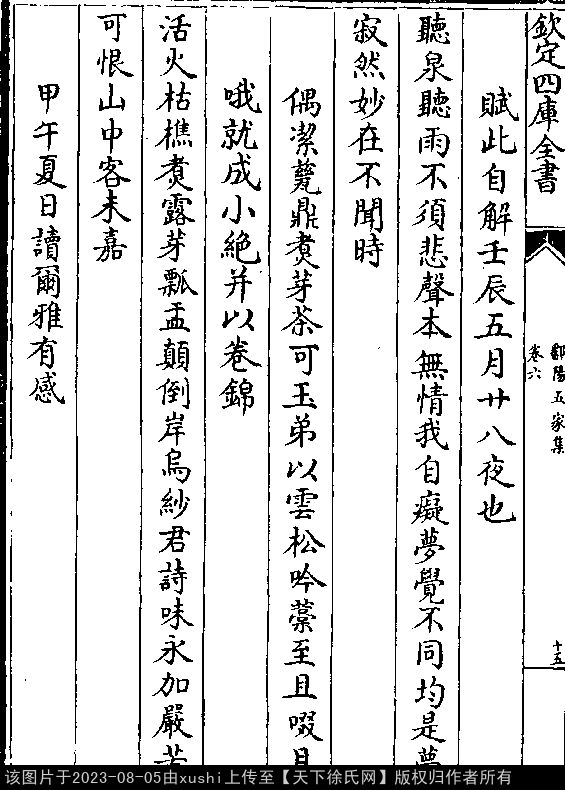 欽定四庫全書
鄱陽五家集
卷六
十五
賦此自解壬辰五月廿八夜也
聽泉聽雨不須悲聲本無情我自癡夢覺不同均是夢
寂然妙在不聞時
偶潔甆鼎煑芽茶可玉弟以雲松吟藁至且啜且
哦就成小絶并以卷錦
活火枯樵煑露芽瓢盂顛倒岸烏紗君詩味永加嚴苦
可恨山中客未嘉
甲午夏日讀爾雅有感
该图片于2023-08-05由xushi上传至【天下徐氏网】版权归作者所有